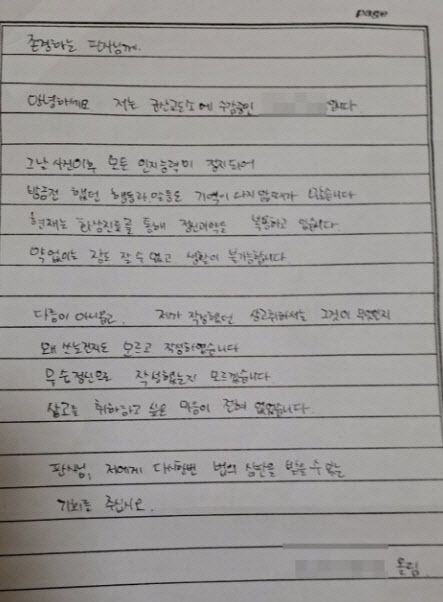 page
존경하는 판사님께.
안녕하세요 저는 군산교도소에 수감중인 입니다
그날 사건이후 모든 인지능력이 정지되어
방금전 했던 행동과 말들도 기억이 나지 않을때가 많습니다
현재는 화상진료를 통해 정신과약을 복용하고 있습니다.
약 없이는 잠도 잘 수 없고 생활이 불가능합니다
다름이 아니옵고. 제가 작성했던 상고취하서는 그것이 무엇인지
왜 쓰는건지도 모르고 작성하였습니다
무슨정신으로 작성했는지 모르겠습니다.
상고를 취하하고 싶은 마음이 전혀 없었습니다.
판사님, 저에게 다시한번 법의 심판을 받을 수 있는
기회를 주십시오.
올림.